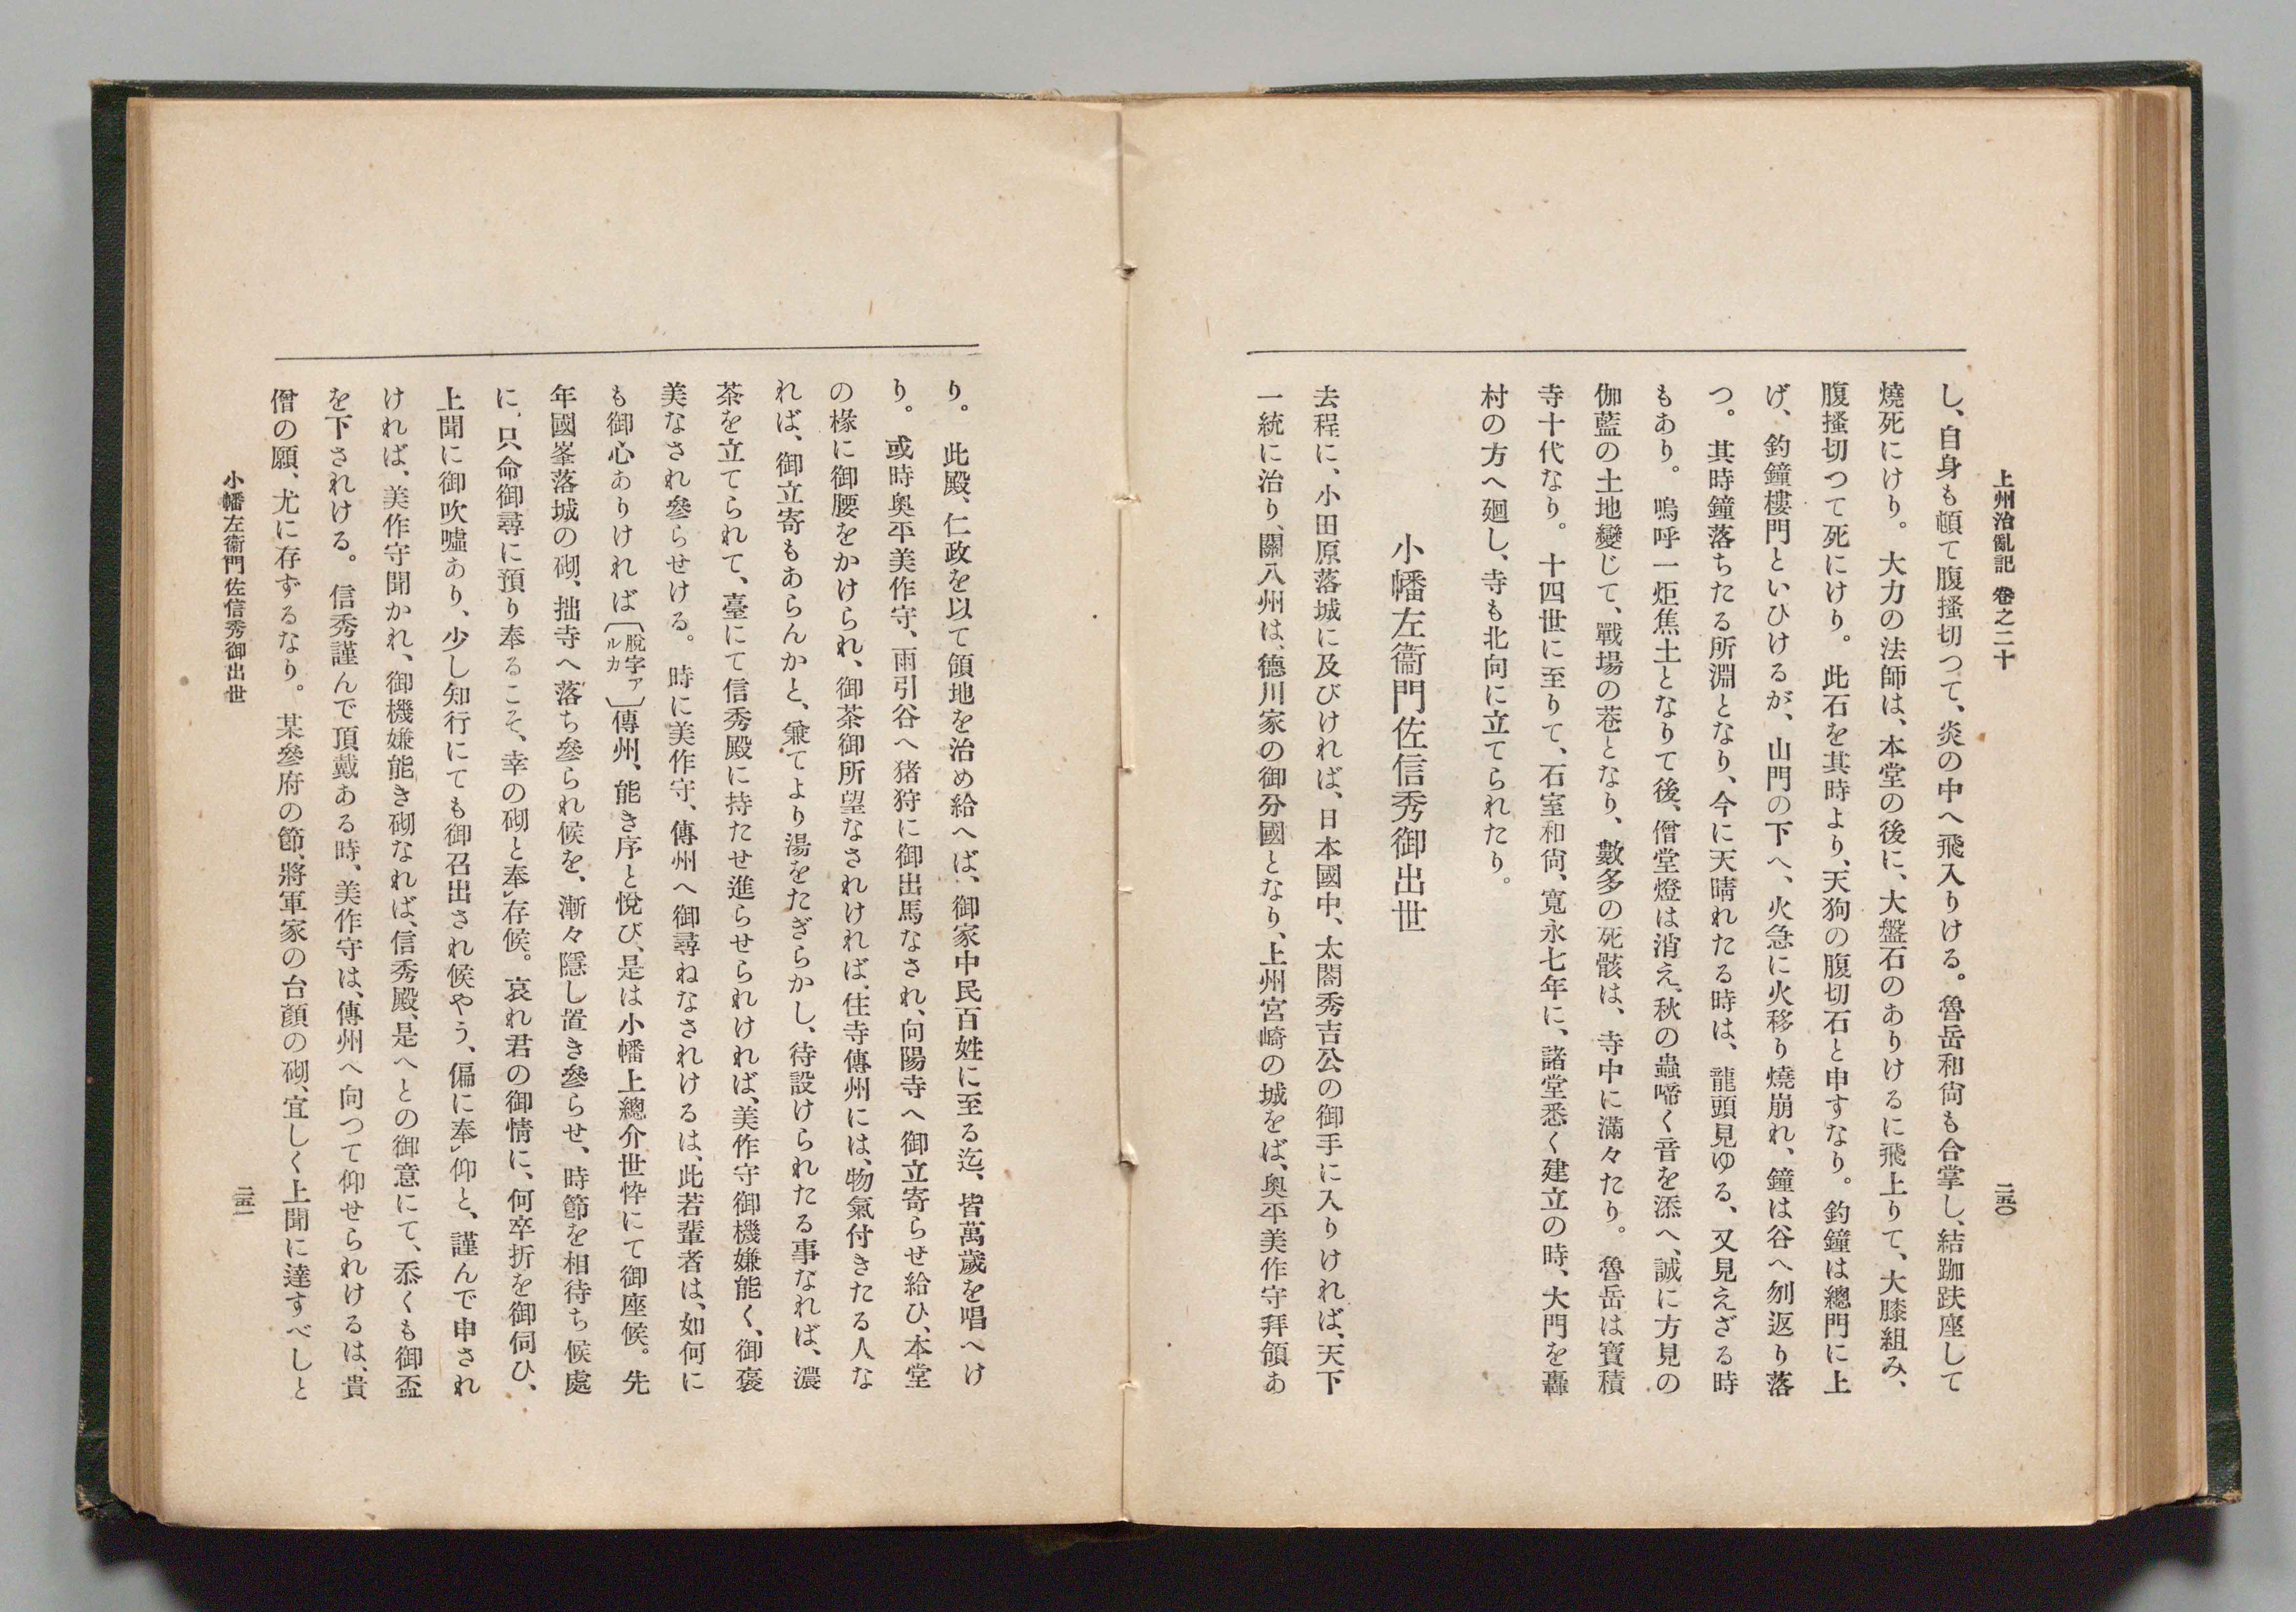 上州治亂記 卷之二十
二五〇
し、自身も頓て腹搔切つて、炎の中へ飛入りける。魯岳和尙も合掌し、結跏趺座して
燒死にけり。大力の法師は、本堂の後に、大盤石のありけるに飛上りて、大膝組み、
腹搔切つて死にけり。此石を其時より、天狗の腹切石と申すなり。釣鐘は總門に上
げ、釣鐘樓門といひけるが、山門の下へ、火急に火移り燒崩れ、鐘は谷へ刎返り落
つ。其時鐘落ちたる所淵となり、今に天晴れたる時は、龍頭見ゆる、又見えざる時
もあり。嗚呼一炬焦土となりて後、僧堂燈は消え、秋の蟲啼く音を添へ、誠に方見の
伽藍の土地變じて、戰場の巷となり、數多の死骸は、寺中に滿々たり。魯岳は寶積
寺十代なり。十四世に至りて、石室和尙、寬永七年に、諸堂悉く建立の時、大門を轟
村の方へ廻し、寺も北向に立てられたり。
小幡左衞門佐信秀御出世
去程に、小田原落城に及びければ、日本國中、太閤秀吉公の御手に入りければ、天下
一統に治り、關八州は、德川家の御分國となり、上州宮崎の城をば、奧平美作守拜領あ
り。此殿、仁政を以て領地を治め給へば、御家中民百姓に至る迄、皆萬歲を唱へけ
り。或時奧平美作守、雨引谷へ猪狩に御出馬なされ、向陽寺へ御立寄らせ給ひ、本堂
の椽に御腰をかけられ、御茶御所望なされければ、住寺傳州には、物氣付きたる人な
れば、御立寄もあらんかと、兼てより湯をたぎらかし、待設けられたる事なれば、濃
茶を立てられて、臺にて信秀殿に持たせ進らせられければ、美作守御機嫌能く、御褒
美なされ參らせける。時に美作守、傳州へ御尋ねなされけるは、此若輩者は、如何に
も御心ありければ〔脫字アルカ〕傳州、能き序と悅び、是は小幡上總介世忰にて御座候。先
年國峯落城の砌、拙寺へ落ち參られ候を、漸々隱し置き參らせ、時節を相待ち候處
に、只命御尋に預り奉るこそ、幸の砌と奉﹅存候。哀れ君の御情に、何卒折を御伺ひ、
上聞に御吹噓あり、少し知行にても御召出され候やう、偏に奉﹅仰と、謹んで申され
ければ、美作守聞かれ、御機嫌能き砌なれば、信秀殿、是へとの御意にて、忝くも御盃
を下されける。信秀謹んで頂戴ある時、美作守は、傳州へ向つて仰せられけるは、貴
僧の願、尤に存ずるなり。某參府の節、將軍家の台顏の砌、宜しく上聞に達すべしと
小幡左衞門佐信秀御出世
二五一